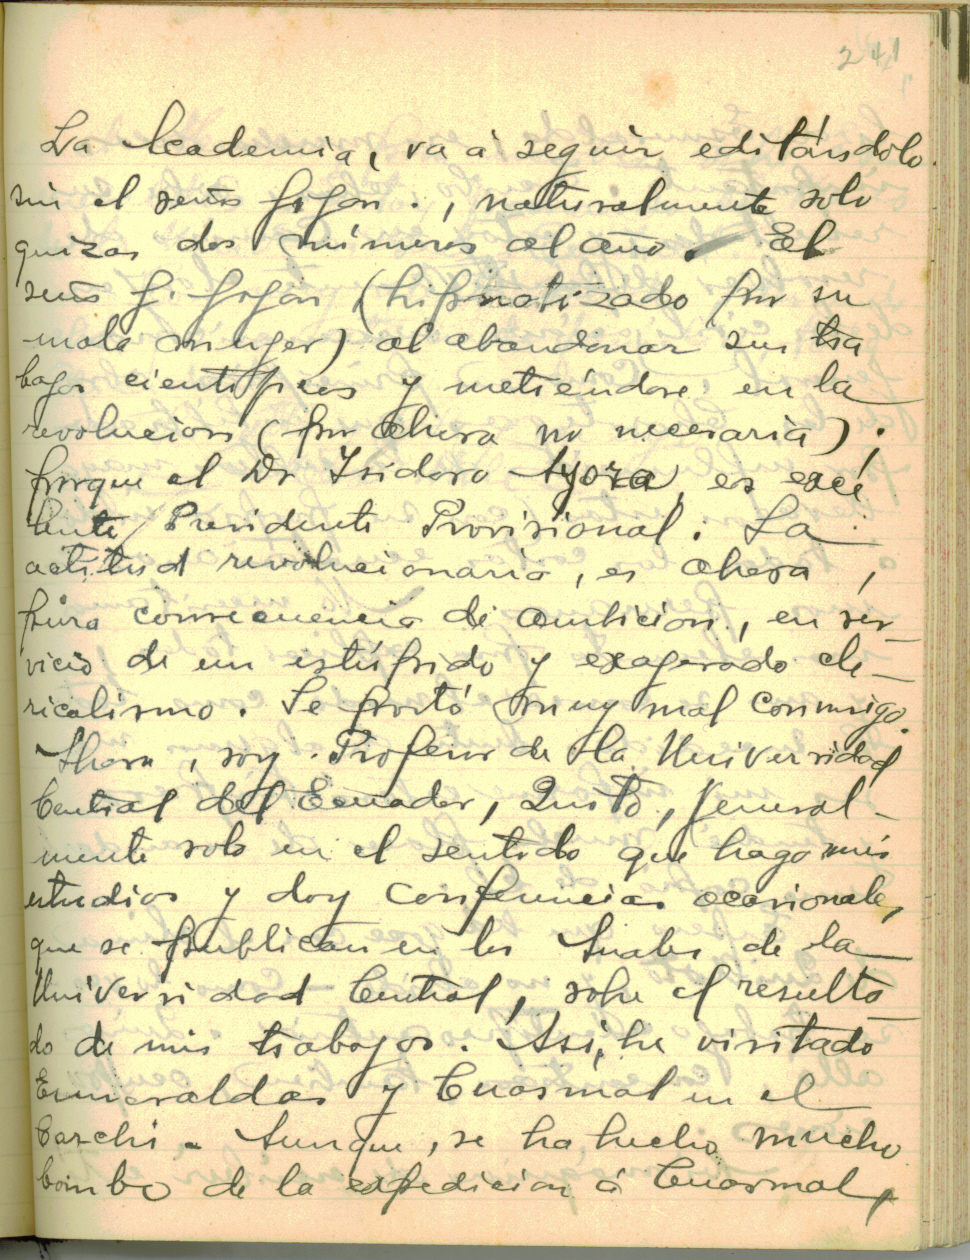 241
La Academia, va á seguir editándolo
sin el señor Jijón., naturalmente solo
quizas dos números al año. El
señor J. Jijón (hipnotizado por su
mala mujer) al abandonar sus tra
bajos cientificos y metiéndose en la
revolucion (por ahora no necesaria);
porque el Dr Isidoro Ayora, es exce
lente Presidente Provisional. La
actitud revolucionaria, es ahora,
pura consecuencia de ambicion, en ser-
vicio de un estúpido y exagerado cle-
ricalismo. Se portó muy mal conmigo.
Ahora, soy Profesor de la Universidad
Central del Ecuador, Quito, jeneral-
mente solo en el sentido que hago mis
estudios y doy conferencias ocasionales,
que se publican en los Anales de la
Universidad Central, sobre el resulta-
do de mis trabajos. Asi, he visitado
Esmeraldas y Cuasmal en el
Carchi. Aunque, se ha hecho mucho
bombo de la expedicion á Cuasmal,